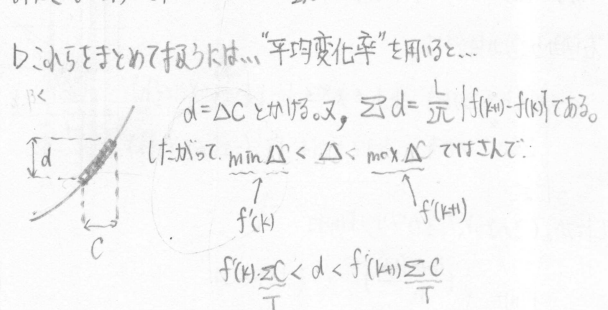 これらをまとめて扱うには…"平均変化率"を用いると…
d=ΔCとかける。又, Σd=L/2π{f(k+1)-f(k)}である。
したがって min Δ < Δ < max Δ ではさんで:
d
f'(k)
f'(k+1)
C
f'(k)·ΣC < d < f'(k+1)ΣC
T
T